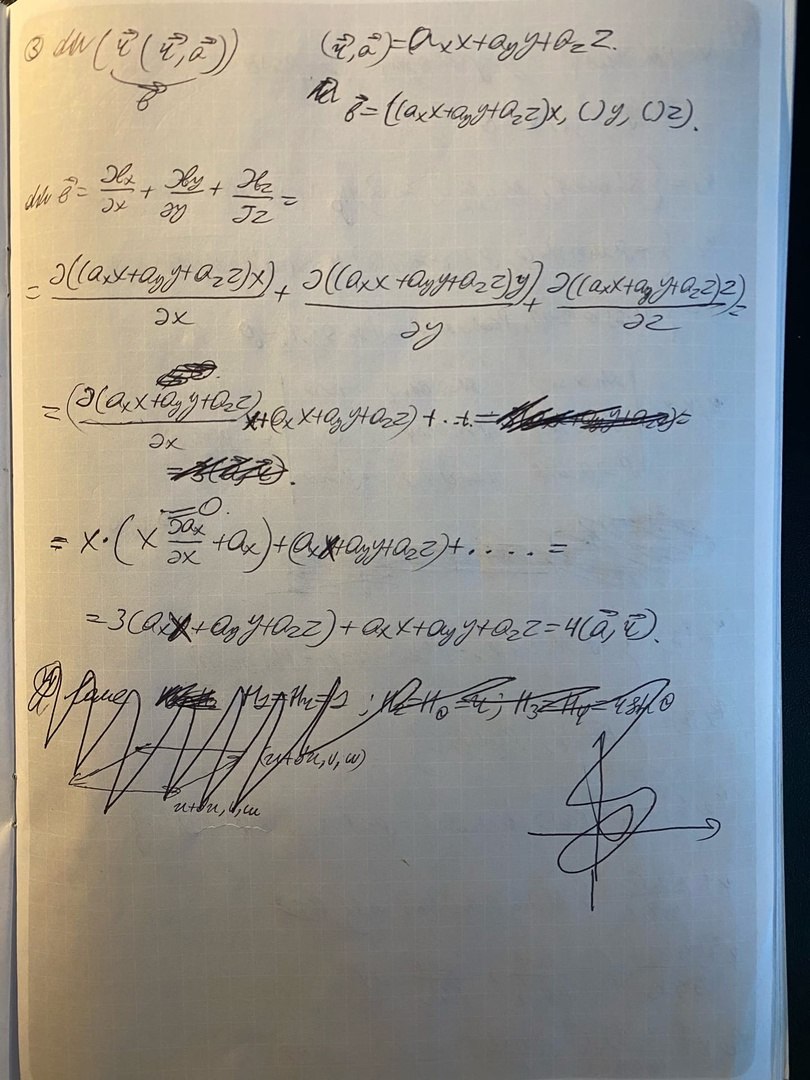 ③ div(r⃗(r⃗,a⃗)) (r⃗,a⃗)=aₓx+a_yy+a_zz.
b⃗
b⃗=((aₓx+a_yy+a_zz)x, ()y, ()z).
div b⃗ = ∂bₓ/∂x + ∂b_y/∂y + ∂b_z/∂z =
= ∂((aₓx+a_yy+a_zz)x)/∂x + ∂((aₓx+a_yy+a_zz)y)/∂y + ∂((aₓx+a_yy+a_zz)z)/∂z =
= (∂(aₓx+a_yy+a_zz)/∂x x+aₓx+a_yy+a_zz) + ... =
=0.
= x·(x ∂aₓ/∂x + aₓ)+(aₓx+a_yy+a_zz)+.... =
=3(aₓx+a_yy+a_zz)+aₓx+a_yy+a_zz=4(a⃗,r⃗).
H₁=Hᵣ=1 ; H₂=H_θ=r; H₃=H_φ=r sin θ
(u+du,v,w)
u+du,v,w